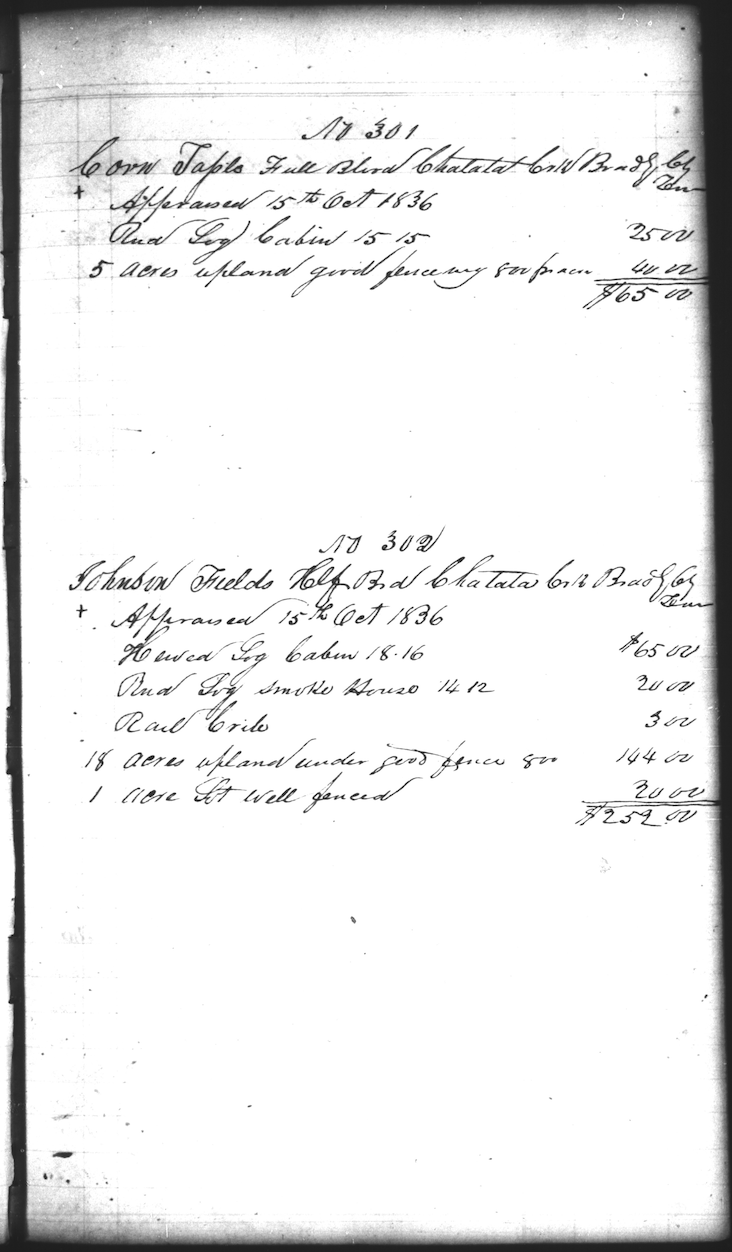 No 301
Corn Tassle Full Blood Chatata Crk Bradly Cty
Ten
+ Appraised 15th Oct 1836
Rnd Log Cabin 15 15 25 00
5 acres upland good fencing 800 pr acre 40 00
$65 00
No 302
Johnson Fields Hlf Brd Chatata Crk Bradly Cty
Ten
+ Appraised 15th Oct 1836
Hewed Log Cabin 18.16 $65 00
Rnd Log Smoke House 14 12 20 00
Rail Crib 3 00
18 acres upland under good fence 800 144 00
1 acre Lot well fenced 20 00
$252 00